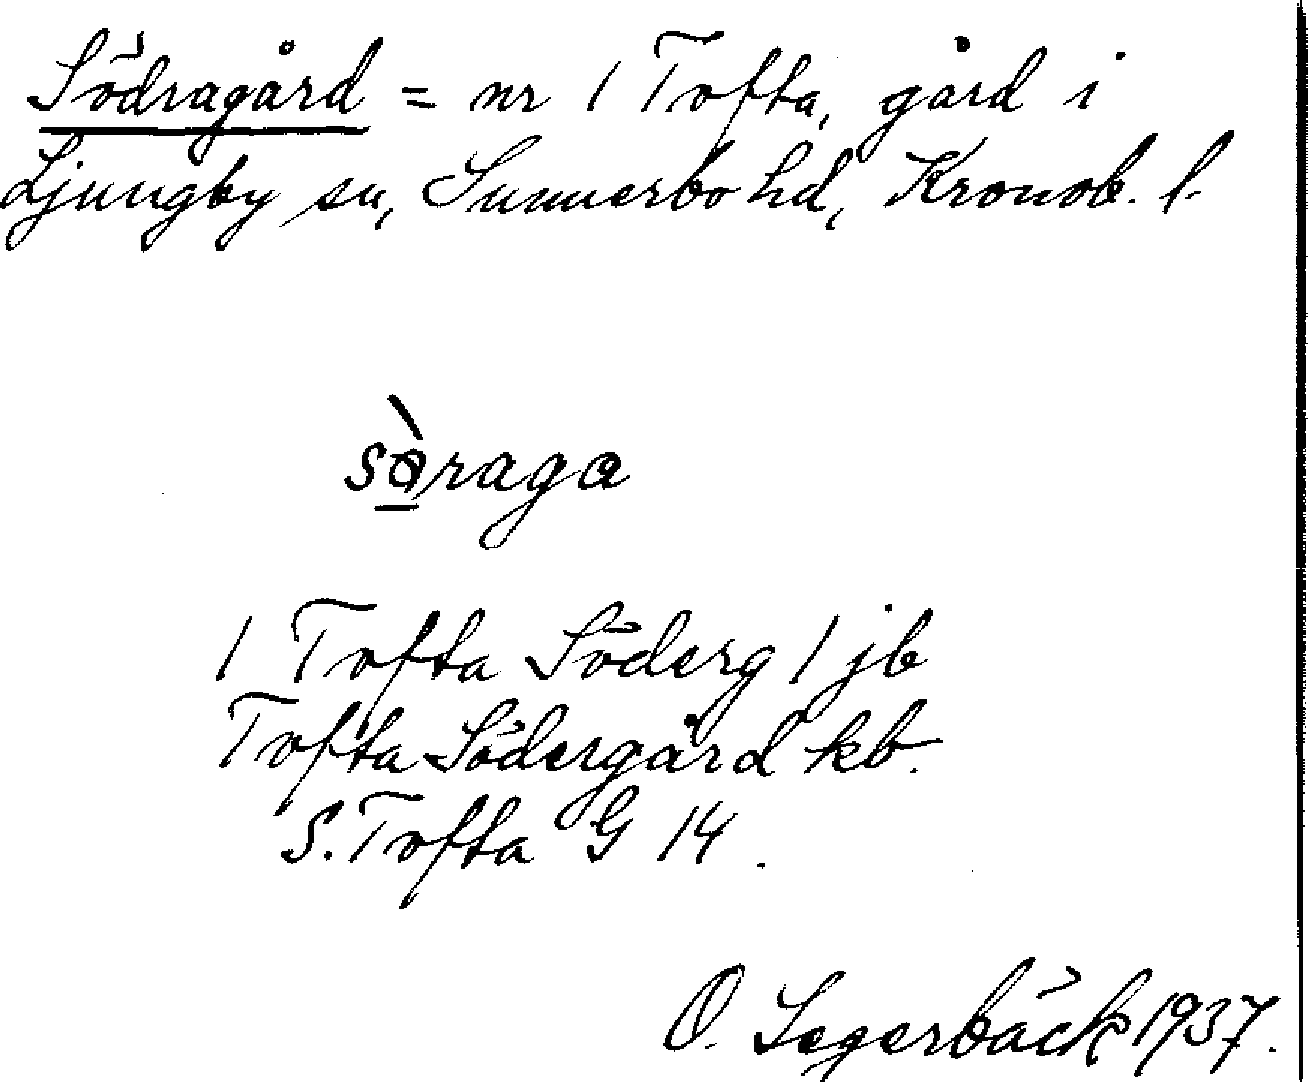 Södragård = nr 1 Tofta, gård i
Ljungby sn, Sunnerbo hd, Kronob. l.
sö̀raga
1 Tofta Söderg 1 jb
Tofta Södergård kb.
S. Tofta G 14.
O. Segerbäck 1937.